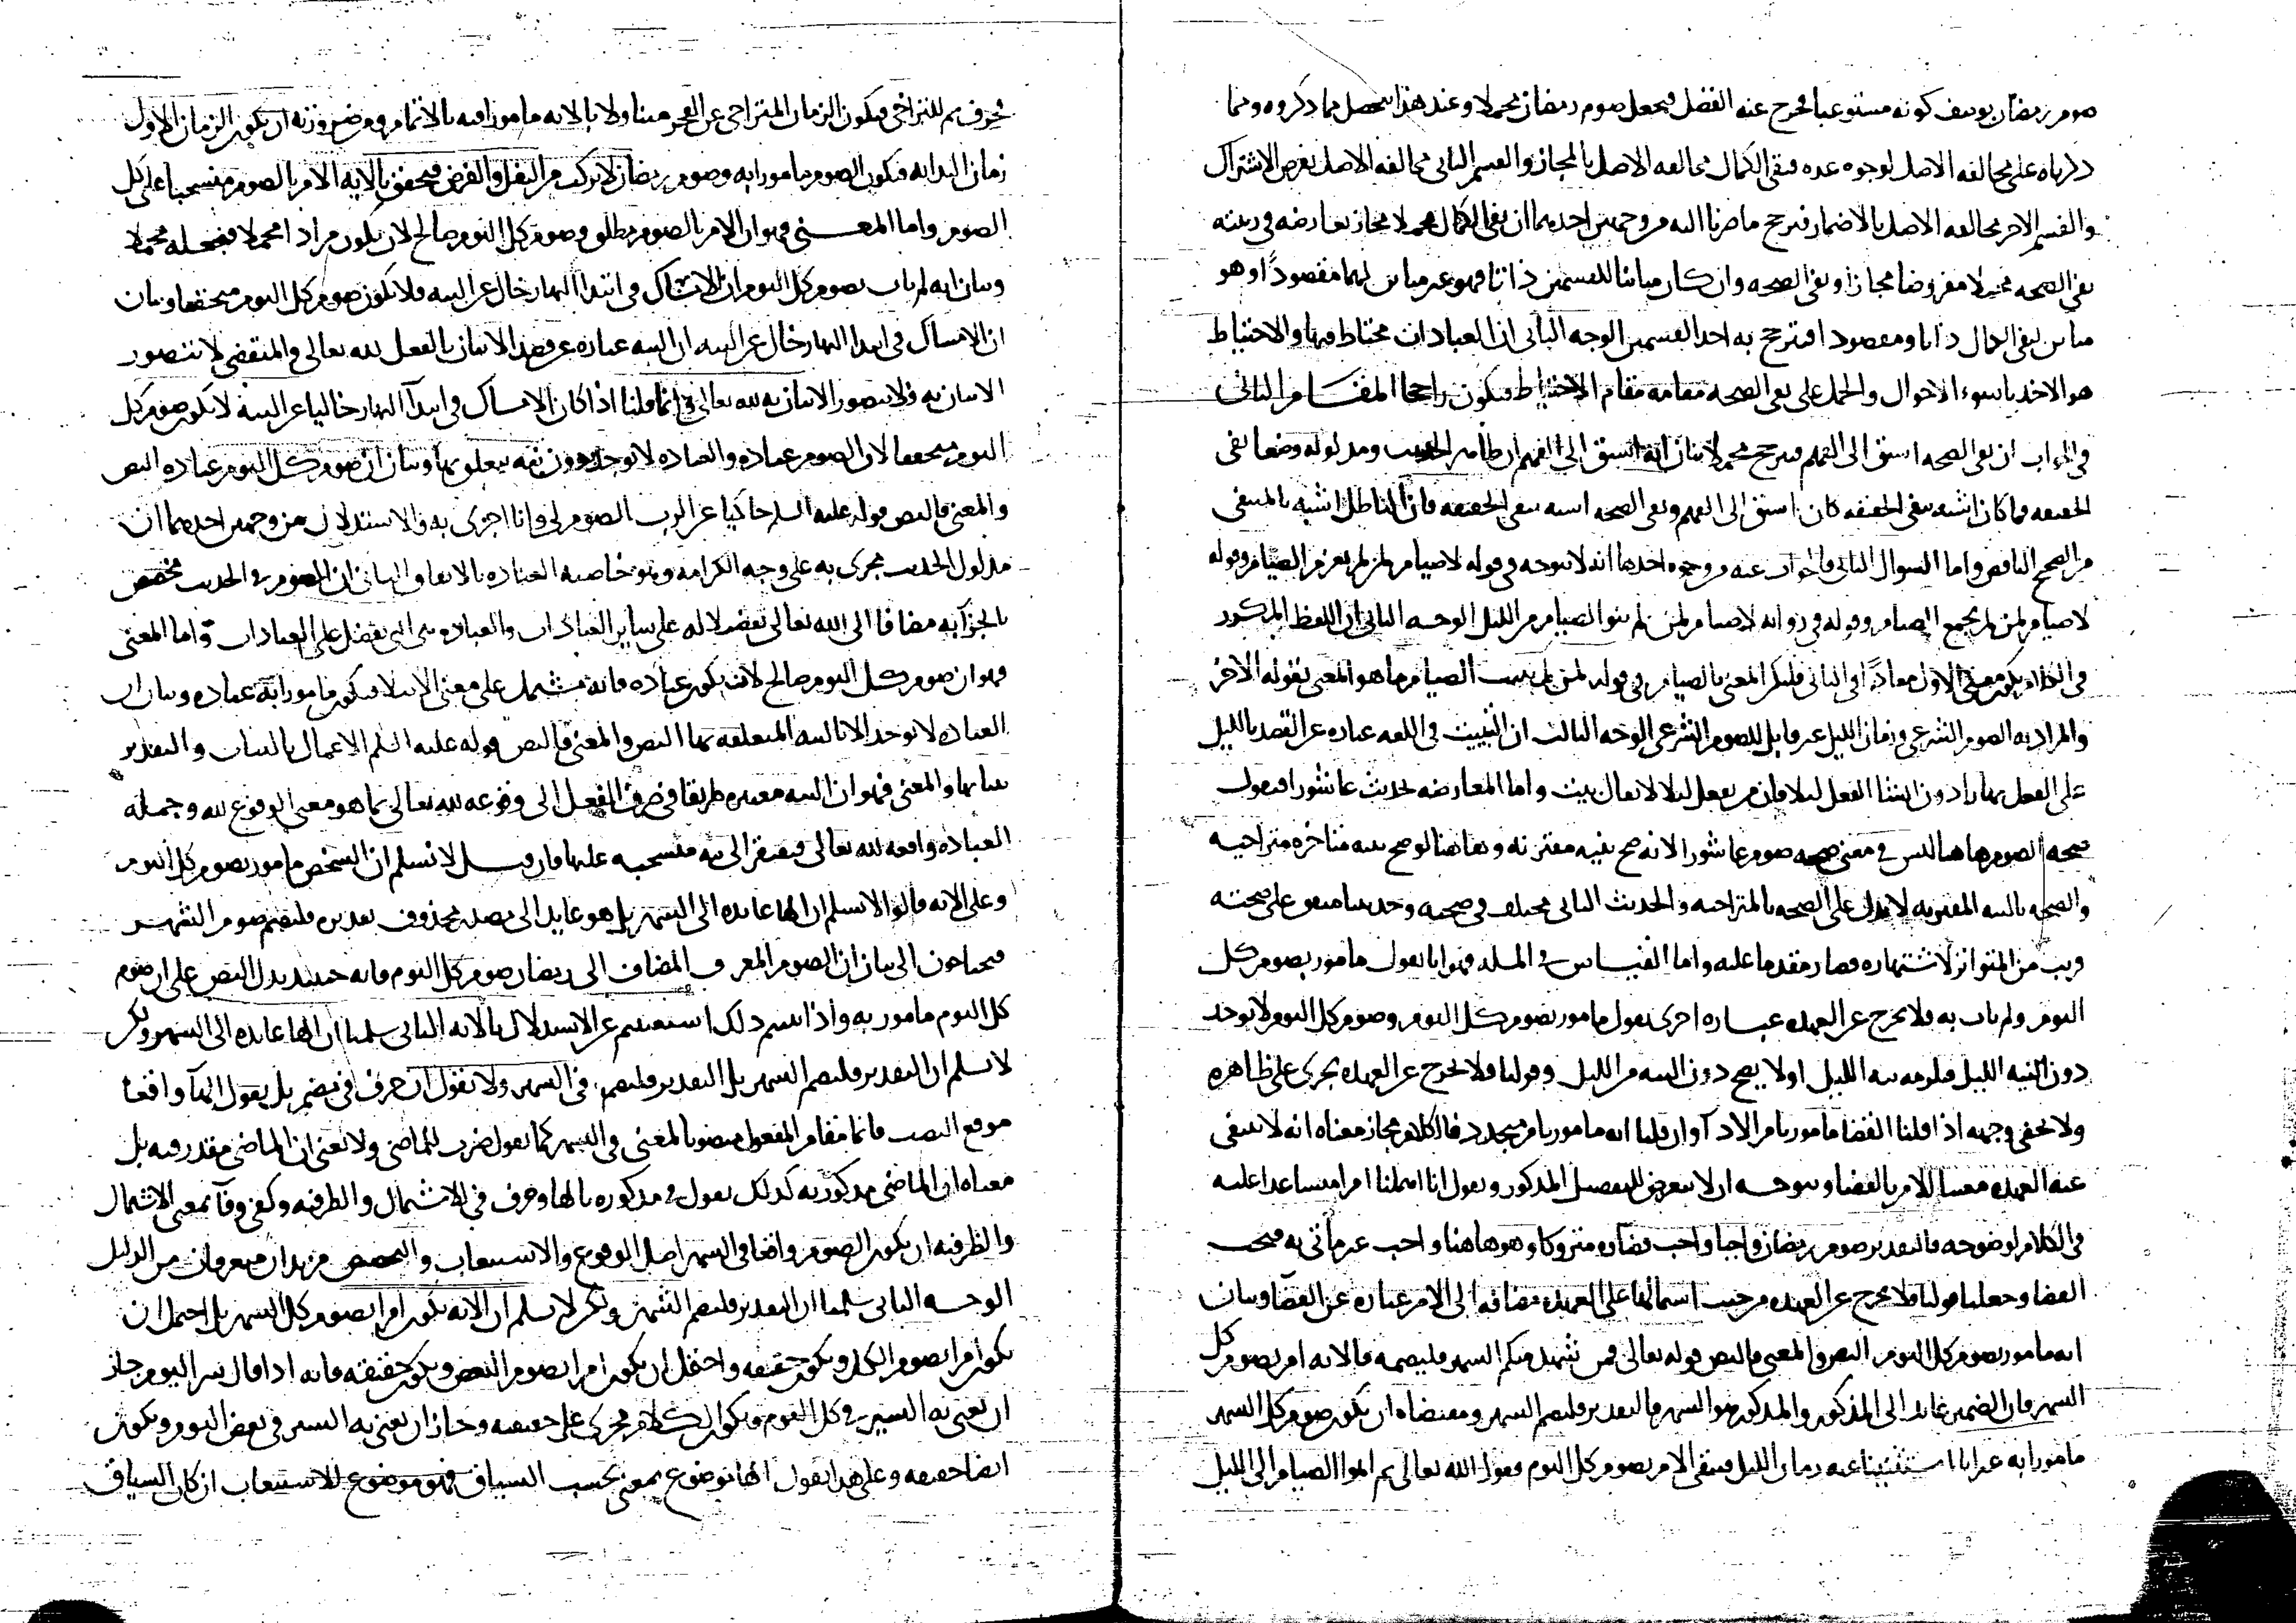 صوم رمضان بوصف كونه مستوعبا فخرج عنه الفضل فيجعل صوم رمضان محملا وعند هذا يحصل مما ذكروه ومما
ذكرناه على مخالفه الاصل لوجوه عده فنفى الكمال مخالفه الاصل بالمجاز والقسم الثانى مخالفه الاصل بفرض الاشتراك
والقسم الاخر مخالفه الاصل بالاضمار فترجح ما صرنا اليه من وجهين احدهما ان نفى الكمال محملا مجاز تعارضه فى رتبته
نفى الصحه محملا مفروضا مجازا ونفى الصحه وان كان مباينا للقسمين ذاتا فهو غير مباين لهما مقصودا اوهو
مباين لنفى الكمال ذاتا ومقصودا فترجح به احد القسمين الوجه الثانى ان العبادات محتاط فيها والاحتياط
هو الاخذ باسوء الاحوال والحمل على نفى الصحه مقامه مقام الاحتياط فيكون راجحا المقام الثانى
فى الجواب ان نفى الصحه اسبق الى الفهم فترجح محملا بيان انه اسبق الى الفهم ان ظاهر الحديث ومدلوله وضعا نفى
الحقيقه فما كان اشبه بنفى الحقيقه كان اسبق الى الفهم ونفى الصحه اشبه بنفى الحقيقه فان الباطل اشبه بالمنفى
من الصحيح الناقص واما السوال الثانى فالجواب عنه من وجوه احدها انه لا يتوجه فى قوله لا صيام لمن لم يعزم الصيام وقوله
لا صيام لمن لم يجمع الصيام وقوله فى روايه لا صيام لمن لم ينو الصيام من الليل الوجه الثانى ان اللفظ المذكور
فى الكلام يكون معنى الاول معادا فى الثانى فليكن المعنى بالصيام فى قوله لمن لم يبيت الصيام ما هو المعنى بقوله الاخر
والمراد به الصوم الشرعى وزمان الليل غير قابل للصوم الشرعى الوجه الثالث ان التبييت فى اللغه عباره عن القصد بالليل
على الفعل نهارا دون انشا الفعل ليلا فان من يفعل ليلا لا يقال يبيت واما المعارضه لحديث عاشورا فنقول
صحه الصوم هاهنا ليس فى معنى صحه صوم عاشورا لانه صح بنيه مقترنه وهاهنا لو صح بنيه متاخره متراخيه
والصحه بالنيه المقترنه لا تدل على الصحه بالمتراخيه والحديث الثانى مختلف فى صحته وحديثنا متفق على صحته
قريب من المتواتر لاشتهاره فصار مقدما عليه واما القياس فى المسله فهو انا نقول مامور بصوم كل
اليوم ولم يات به فلا يخرج عن العهده عباره اخرى نقول مامور بصوم كل اليوم وصوم كل اليوم لا يوجد
دون النيه الليل فلزمه نيه الليل او لا يصح دون النيه من الليل وقولنا فلا يخرج عن العهده يجرى على ظاهره
ولا يخفى وجهه اذا قلنا القضا مامور بامر الاداء وان قلنا انه مامور بامر مجدد فالكلام مجاز معناه انه لا تنتفى
عنه العهده مفسا للامر بالقضا ويتوجه ان لا يتعرض للتفصيل المذكور ونقول انا اهملنا امرا متساعدا عليه
فى الكلام لوضوحه فالتقدير صوم رمضان واجبا واجب قضاوه متروكا وهو هاهنا واجب غير ماتى به فيجب
القضا وجعلنا قولنا فلا يخرج عن العهده من حيث اشتمالها على العهده مضافه الى الامر عباره عن القضا وبيان
انه مامور بصوم كل اليوم النص والمعنى فالنص قوله تعالى فمن شهد منكم الشهر فليصمه فالايه امر بصوم كل
الشهر فان الضمير عائد الى المذكور والمذكور هو الشهر فالتقدير فليصم الشهر ومقتضاه ان يكون صوم كل الشهر
مامورا به غير انا استثنينا عنه زمان الليل فيبقى الامر بصوم كل اليوم فيقول الله تعالى ثم اتموا الصيام الى الليل
فحرف ثم للتراخى فيكون الزمان المتراخى عن الفجر متناولا بالايه مامورا فيه بالاتمام ومن ضرورته ان يكون الزمان الاول
زمان البدايه فيكون الصوم مامورا به وصوم رمضان لا يتركب من النفل والفرض فيتحقق بالايه الامر بالصوم منسحبا على كل
الصوم واما المعنى فهو ان الامر بالصوم مطلق وصوم كل اليوم صالح لان يكون مرادا محملا فنجعله محملا
وبيان انه لم يات بصوم كل اليوم ان الامساك فى ابتدا النهار خال عن النيه فلا يكون صوم كل اليوم متحققا وبيان
ان الامساك فى ابتدا النهار خال عن النيه ان النيه عباره عن قصد الاتيان بالفعل لله تعالى والمنقضى لا يتصور
الاتيان به فلا يتصور الاتيان به لله تعالى وانما قلنا اذا كان الامساك فى ابتدآ النهار خاليا عن النيه لا يكون صوم كل
اليوم متحققا لان الصوم عباده والعباده لا توجد دون نيه يتعلق بها وبيان ان صوم كل اليوم عباده النص
والمعنى فالنص قوله عليه السلم حاكيا عن الرب الصوم لى وانا اجزى به والاستدلال من وجهين احدهما ان
مدلول الحديث يجزى به على وجه الكرامه وهو خاصيه العباده بالاتفاق الثانى ان الصوم فى الحديث مخصص
بالجزآ به مضافا الى الله تعالى تفضيلا له على ساير العبادات والعباده هى التى تفضل على العبادات واما المعنى
فهو ان صوم كل اليوم صالح لان يكون عباده فانه مشتمل على معنى الابتلا فيكون مامورا به عباده وبيان ان
العباده لا توجد الا بالنيه المتعلقه بها النص والمعنى فالنص قوله عليه السلم الاعمال بالنيات والتقدير
بنياتها والمعنى فهو ان النيه معتبره طريقا فى صرف الفعل الى وقوعه لله تعالى بما هو معنى الوقوع لله وجمله
العباده واقعه لله تعالى فيفتقر الى نيه منسحبه عليها فان قيل لا نسلم ان الشخص مامور بصوم كل اليوم
وعلى الايه قالوا لا نسلم ان الها عايده الى الشهر بل هو عايد الى مصدر محذوف تقديره فليصم صوم الشهر
فيحتاجون الى بيان ان الصوم المعرف المضاف الى رمضان صوم كل اليوم فانه حينيذ يدل النص على ان صوم
كل اليوم مامور به واذا اثبتم ذلك استغنيتم عن الاستدلال بالايه الثانى سلمنا ان الها عايده الى الشهر ولكن
لا نسلم ان التقدير فليصم الشهر بل التقدير فليصم فى الشهر ولا نقول ان حرف فى مضمر بل نقول الهآ واقعا
موقع النصب قايما مقام المفعول منصوبا لمعنى فى الشهر كما نقول ضرب للماضى ولا نعنى ان الماضى مقدر فيه بل
معناه ان الماضى مذكور به كذلك نقول فى مذكوره بالها وحرف فى للاشتمال والظرفيه وكفى وفآ بمعنى الاشتمال
والظرفيه ان يكون الصوم واقعا فى الشهر اصل الوقوع والاستيعاب والتخصيص مزيدان يعرفان من الدليل
الوجه الثانى سلمنا ان التقدير فليصم الشهر ولكن لا نسلم ان الايه تكون امرا بصوم كل الشهر بل احتمل ان
يكون امرا بصوم الكل ويكون حقيقه واحتمل ان يكون امرا بصوم البعض ويكون حقيقه فانه اذا قال سر اليوم جاز
ان يعنى به السير فى كل اليوم ويكون الكلام مجرى على حقيقته وجاز ان يعنى به السير فى بعض اليوم ويكون
ايضا حقيقه وعلى هذا نقول الها موضوع بمعنى بحسب السياق فهو موضوع للاستيعاب ان كان السياق